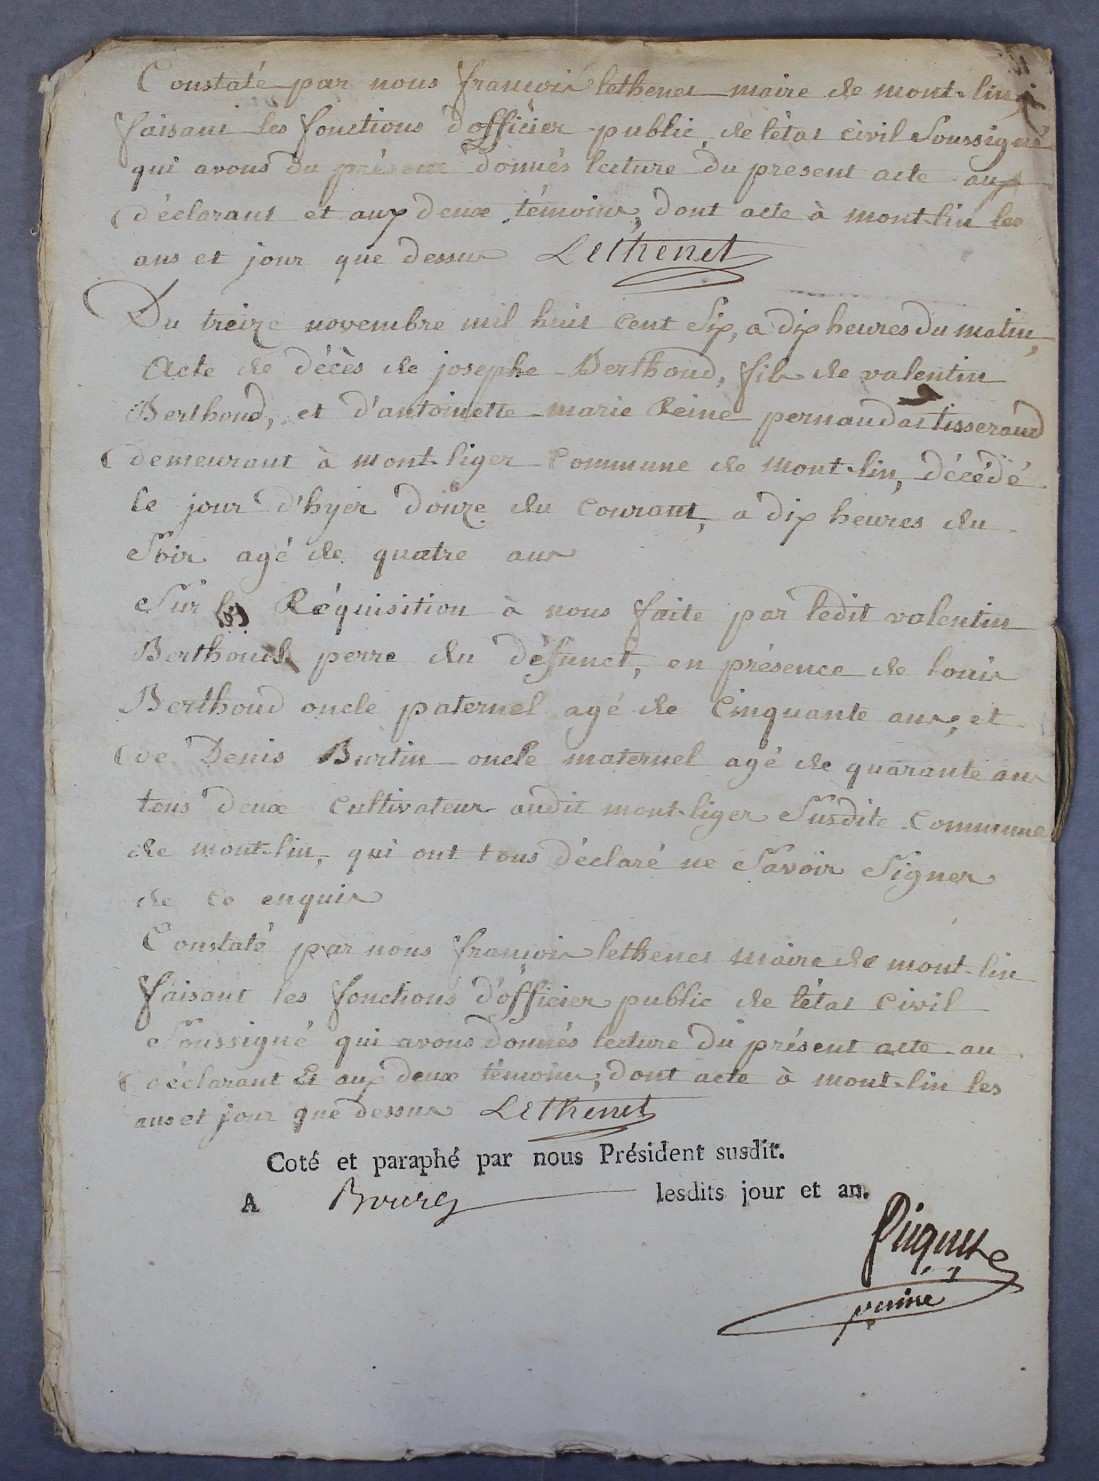 Constaté par nous françois lethenet maire de mont-lin
faisant les fonctions d'officier public de l'état civil Soussigné
qui avons du présent donnés lecture du present acte aux
déclarant et aux deux témoins, dont acte à mont-lin les
ans et jour que dessus Lethenet
Du treize novembre mil huit cent Six, a dix heures du matin,
Acte de décès de josephe Berthoud, fils de valentin
Berthoud, et d'antoinette marie Reine pernaudat tisserand
demeurant à mont-liger Commune de mont-lin, décédé
le jour d'hyer douze du Courant, a dix heures du
Soir agé de quatre ans
Sur la Réquisition à nous faite par ledit valentin
Berthoud perre du défunct, en présence de louis
Berthoud oncle paternel agé de Cinquante ans, et
de Denis Burtin oncle maternel agé de quarante ans
tous deux Cultivateur audit mont-liger Susdite Commune
de mont-lin, qui ont tous déclaré ne Savoir Signer
de ce enquis
Constaté par nous françois lethenet maire de mont-lin
faisant les fonctions d'officier public de l'état Civil
Soussigné qui avons donnés lecture du présent acte au
déclarant Et aux deux témoins; dont acte à mont-lin les
ans et jour que dessus Lethenet
Coté et paraphé par nous Président susdit.
A Bourg lesdits jour et an.